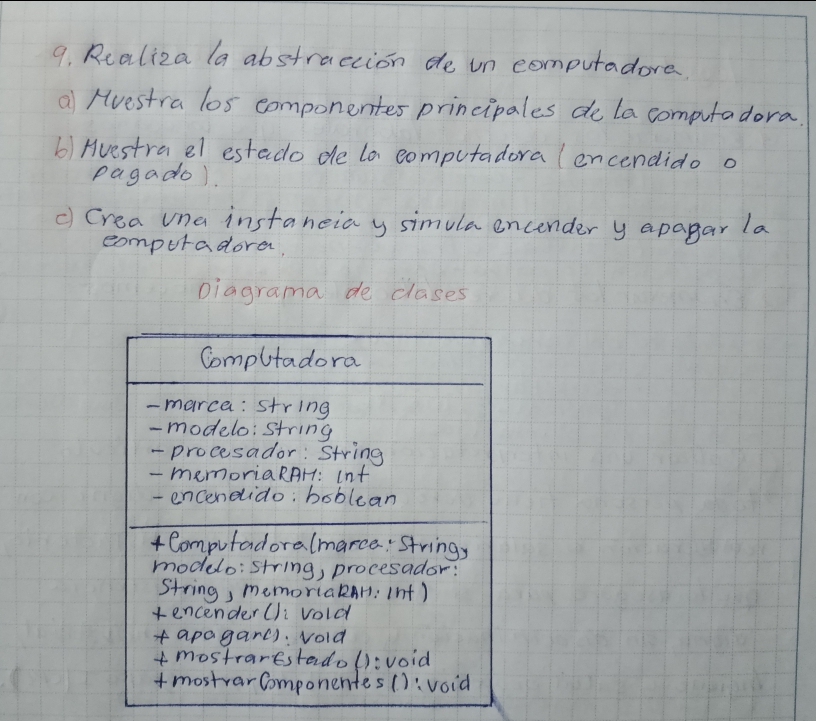 9. Realiza la abstracción de un computadora.
a) Muestra los componentes principales de la computadora.
b) Muestra el estado de la computadora (encendido o
pagado).
c) Crea una instancia y simula encender y apagar la
computadora.
Diagrama de clases
Computadora
- marca: String
- modelo: String
- procesador: String
- memoriaRAM: int
- encendido: boolean
+ Computadora(marca: String,
modelo: String, procesador:
String, memoriaRAM: int)
+ encender(): void
+ apagar(): void
+ mostrarEstado(): void
+ mostrarComponentes(): void